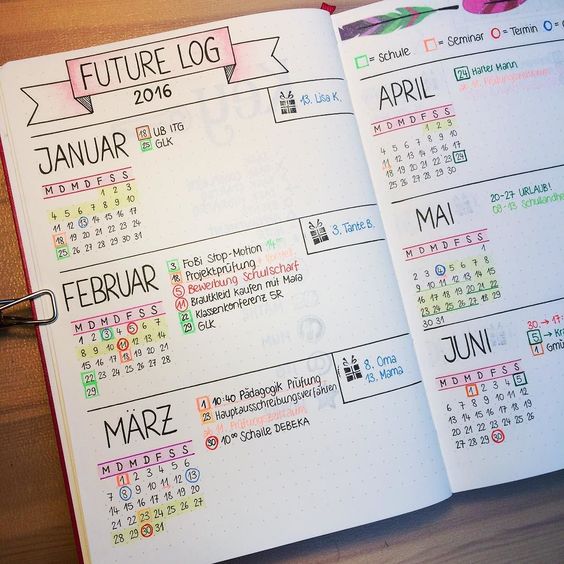 FUTURE LOG
2016
13. Lisa K.
JANUAR
18 UB ITG
25 GLK
M D M D F S S
1 2 3
4 5 6 7 8 9 10
11 12 13 14 15 16 17
18 19 20 21 22 23 24
25 26 27 28 29 30 31
3. Tante B.
FEBRUAR
3 FoBi Stop-Motion 14
18 Projektprüfung
5 Bewerbung Schulscharf
11 Brautkleid kaufen mit Mara
22 Klassenkonferenz 5R
29 GLK
M D M D F S S
1 2 3 4 5 6 7
8 9 10 11 12 13 14
15 16 17 18 19 20 21
22 23 24 25 26 27 28
29
8. Oma
13. Mama
MÄRZ
1 10:40 Pädagogik Prüfung
23 Hauptausschreibungsverfahren
ab 11. Prüfungszeitraum
30 10:00 Schaile DEBEKA
M D M D F S S
1 2 3 4 5 6
7 8 9 10 11 12 13
14 15 16 17 18 19 20
21 22 23 24 25 26 27
28 29 30 31
= Schule = Seminar = Termin =
APRIL
24 Harter Mann
M D M D F S S
1 2 3
4 5 6 7 8 9 10
11 12 13 14 15 16 17
18 19 20 21 22 23 24
25 26 27 28 29 30
MAI
20-27 URLAUB!
09-13 Schullandhe
M D M D F S S
1
2 3 4 5 6 7 8
9 10 11 12 13 14 15
16 17 18 19 20 21 22
23 24 25 26 27 28 29
30 31
JUNI
30. → 17.
5
1 Gmü
M D M D F S S
1 2 3 4 5
6 7 8 9 10 11 12
13 14 15 16 17 18 19
20 21 22 23 24 25 26
27 28 29 30